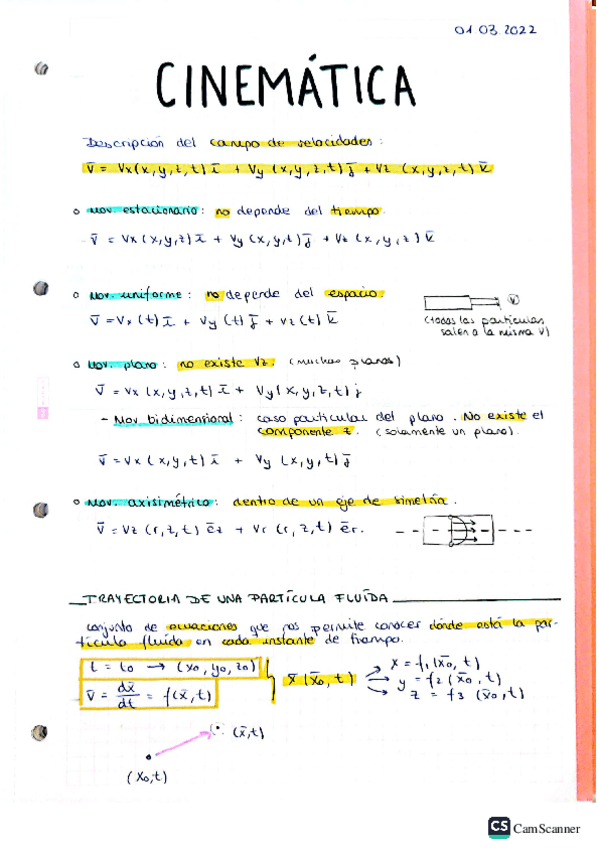 01 03.2022
CINEMÁTICA
Descripción del campo de velocidades:
v̄ = Vx(x,y,z,t) ī + Vy (x,y,z,t) j̄ + Vz (x,y,z,t) k̄
o Mov. estacionario: no depende del tiempo.
v̄ = Vx (x,y,z) ī + Vy (x,y,t) j̄ + Vz (x,y,z) k̄
o Mov. uniforme: no depende del espacio.
v̄ = Vx (t) ī + Vy (t) j̄ + Vz (t) k̄
(todas las partículas
salen a la misma V)
o Mov. plano: no existe Vz. (muchos planos)
v̄ = Vx (x,y,z,t) ī + Vy(x,y,z,t) j
- Mov bidimensional: caso particular del plano. No existe el
componente z. (solamente un plano).
v̄ = Vx (x,y,t) ī + Vy (x,y,t) j̄
o Mov. axisimétrico: dentro de un eje de simetría.
v̄ = Vz (r,z,t) ēz + Vr (r,z,t) ēr.
TRAYECTORIA DE UNA PARTÍCULA FLUÍDA
conjunto de ecuaciones que nos permite conocer dónde está la par-
tícula fluida en cada instante de tiempo.
t = to → (xo, yo, zo)
v̄ = dx̄/dt = f(x̄,t)
x̄ (x̄o, t)
x = f1(x̄o, t)
y = f2 (x̄o, t)
z = f3 (x̄o, t)
(x̄,t)
(xo,t)
CS CamScanner